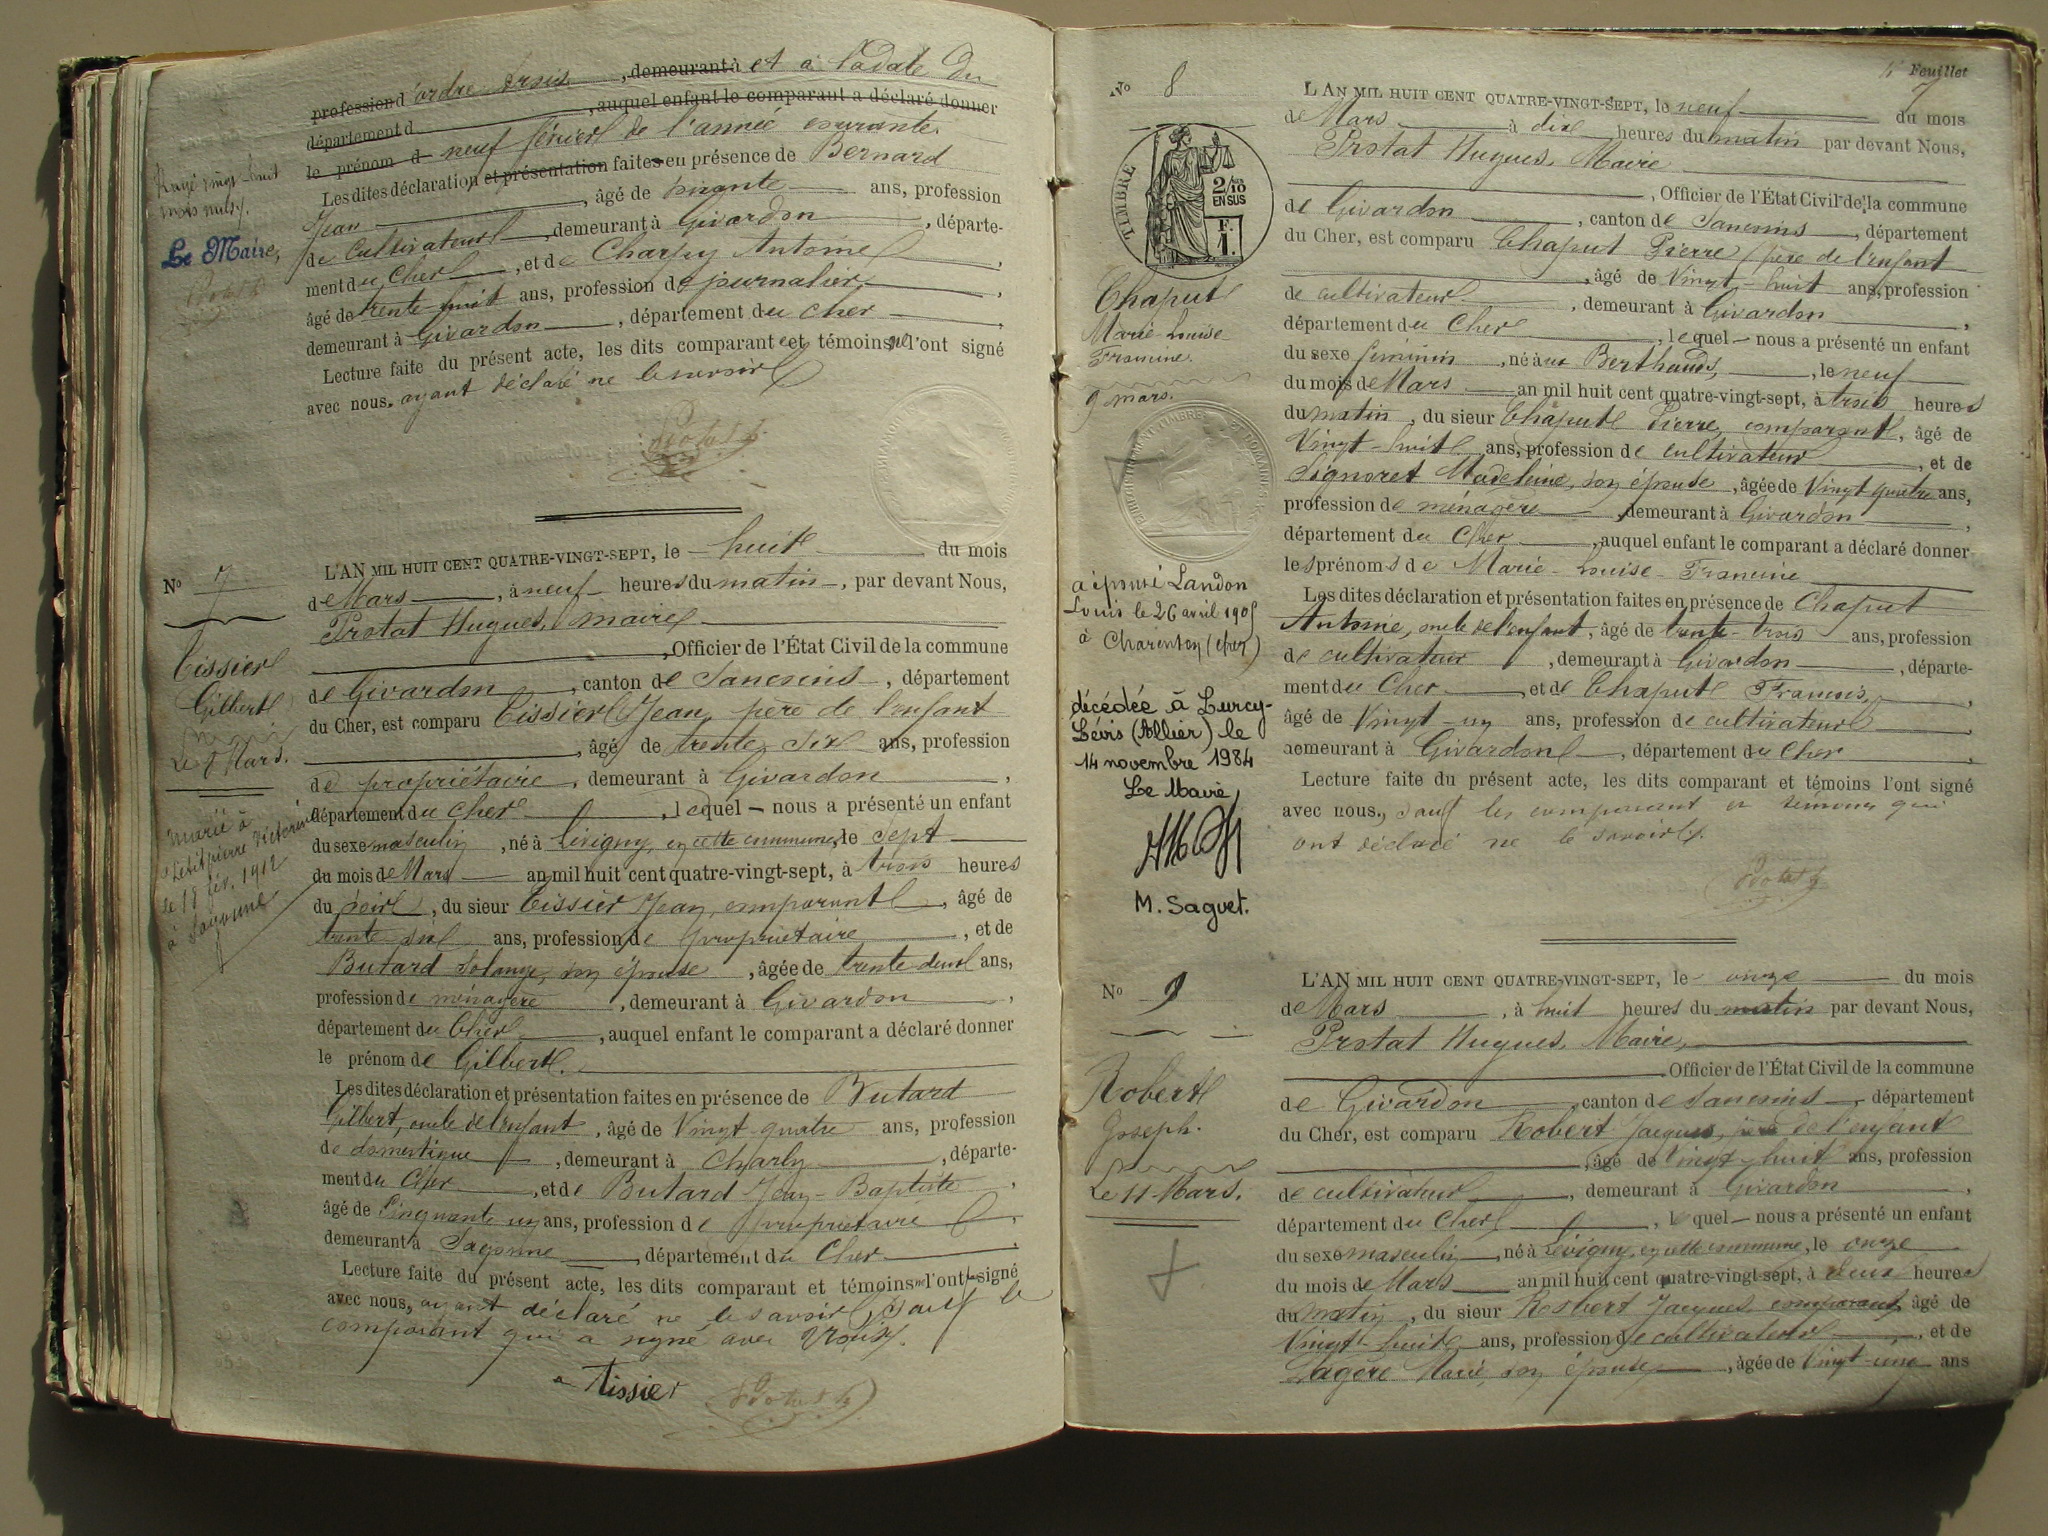 profession d'ordre trois, demeurant à et à la date du
département d , auquel enfant le comparant a déclaré donner
le prénom d neuf février de l'année courante.
Les dites déclaration et présentation faites en présence de Bernard
Jean , âgé de soixante ans, profession
de cultivateur , demeurant à Givardon , départe-
ment du Cher , et de Charpy Antoine ,
âgé de trente-huit ans, profession de journalier ,
demeurant à Givardon , département du Cher ,
Lecture faite du présent acte, les dits comparant et témoins ne l'ont signé
avec nous, ayant déclaré ne le savoir
Rayé vingt-huit
mots nuls.
Le Maire,
No 7
Tissier
Gilbert
Le 8 Mars.
marié à
Petitpierre
le 18 fév. 1912
à Sagonne
L'AN MIL HUIT CENT QUATRE-VINGT-SEPT, le huit du mois
de Mars , à neuf heures du matin , par devant Nous,
Protat Hugues, maire
, Officier de l'État Civil de la commune
de Givardon , canton de Sancoins , département
du Cher, est comparu Tissier Jean, père de l'enfant
, âgé de trente six ans, profession
de propriétaire , demeurant à Givardon ,
département du Cher , lequel nous a présenté un enfant
du sexe masculin , né à Lévigny, en cette commune, le sept
du mois de Mars an mil huit cent quatre-vingt-sept, à trois heures
du soir , du sieur Tissier Jean, comparant , âgé de
trente-six ans, profession de propriétaire , et de
Butard Solange, son épouse , âgée de trente deux ans,
profession de ménagère , demeurant à Givardon ,
département du Cher , auquel enfant le comparant a déclaré donner
le prénom de Gilbert.
Les dites déclaration et présentation faites en présence de Butard
Gilbert, oncle de l'enfant , âgé de Vingt-quatre ans, profession
de domestique , demeurant à Charly , départe-
ment du Cher , et de Butard Jean-Baptiste ,
âgé de Cinquante un ans, profession de propriétaire ,
demeurant à Sagonne , département du Cher
Lecture faite du présent acte, les dits comparant et témoins ne l'ont pas signé
avec nous, ayant déclaré ne le savoir, sauf le
comparant qui a signé avec Nous.
Tissier
4e Feuillet
7
No 8
TIMBRE
2/10
EN SUS
F.
1.
Chaput
Marie-Louise
Francine.
9 mars.
a épousé Landon
Louis le 26 avril 1905
à Charenton (Cher)
décédée à Lurcy-
Lévis (Allier) le
14 novembre 1984
Le Maire,
M. Saguet.
L'AN MIL HUIT CENT QUATRE-VINGT-SEPT, le neuf du mois
de Mars à dix heures du matin par devant Nous,
Protat Hugues, Maire
, Officier de l'État Civil de la commune
de Givardon , canton de Sancoins , département
du Cher, est comparu Chaput Pierre, père de l'enfant
, âgé de Vingt-huit ans, profession
de cultivateur , demeurant à Givardon ,
département du Cher , lequel nous a présenté un enfant
du sexe féminin , né aux Berthauds, , le neuf
du mois de Mars an mil huit cent quatre-vingt-sept, à trois heures
du matin , du sieur Chaput Pierre, comparant , âgé de
Vingt-huit ans, profession de cultivateur , et de
Signoret Madeleine, son épouse , âgée de Vingt quatre ans,
profession de ménagère , demeurant à Givardon ,
département du Cher , auquel enfant le comparant a déclaré donner
les prénoms de Marie-Louise-Francine
Les dites déclaration et présentation faites en présence de Chaput
Antoine, oncle de l'enfant , âgé de trente-trois ans, profession
de cultivateur , demeurant à Givardon , départe-
ment du Cher , et de Chaput François, ,
âgé de Vingt-un ans, profession de cultivateur
demeurant à Givardon , département du Cher .
Lecture faite du présent acte, les dits comparant et témoins l'ont signé
avec nous, sauf les comparant et témoins qui
ont déclaré ne le savoir.
No 9
Robert
Joseph.
Le 11 Mars.
L'AN MIL HUIT CENT QUATRE-VINGT-SEPT, le onze du mois
de Mars , à huit heures du matin par devant Nous,
Protat Hugues, Maire,
Officier de l'État Civil de la commune
de Givardon , canton de Sancoins , département
du Cher, est comparu Robert Jacques, père de l'enfant
, âgé de Vingt-huit ans, profession
de cultivateur , demeurant à Givardon ,
département du Cher , lequel nous a présenté un enfant
du sexe masculin , né à Lévigny, en cette commune, le onze
du mois de Mars an mil huit cent quatre-vingt-sept, à deux heures
du matin , du sieur Robert Jacques, comparant, âgé de
Vingt-huit ans, profession de cultivateur , et de
Lagère Marie, son épouse , âgée de Vingt-cinq ans